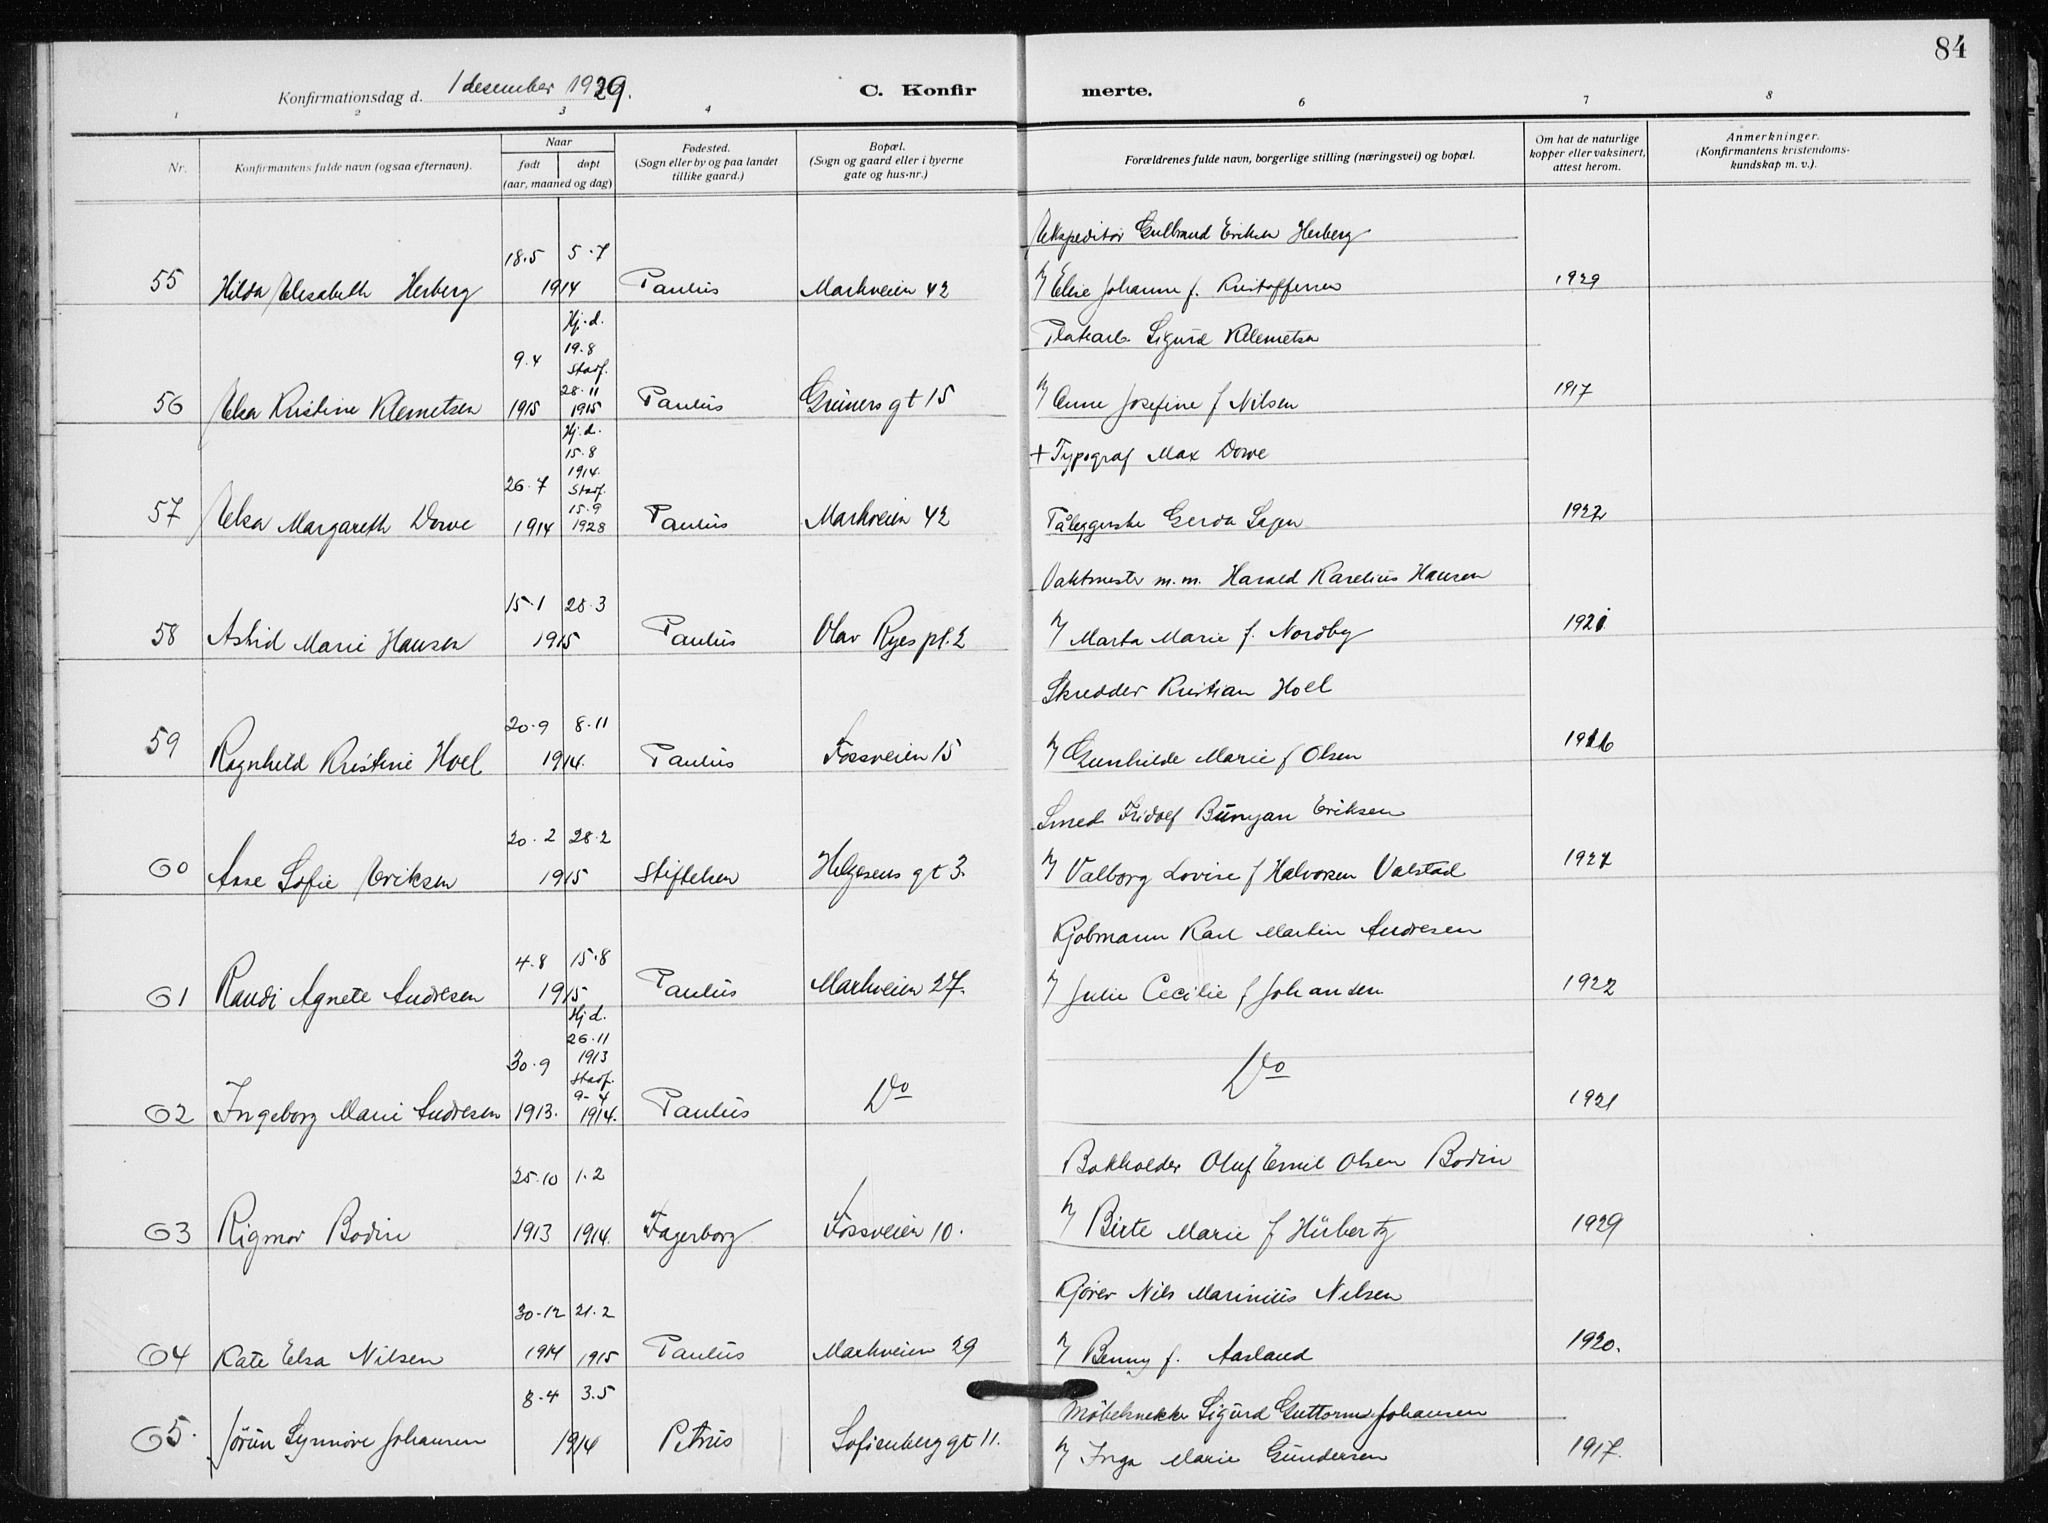 84
Konfirmationsdag d. 1 desember 1929. C. Konfirmerte.
1 2 3 4 6 7 8
Nr.
Konfirmantens fulde navn (ogsaa efternavn).
Naar
født døpt
(aar, maaned og dag)
Fødested.
(Sogn eller by og paa landet
tillike gaard.)
Bopæl.
(Sogn og gaard eller i byerne
gate og hus-nr.)
Forældrenes fulde navn, borgerlige stilling (næringsvei) og bopæl.
Om hat de naturlige
kopper eller vaksinert,
attest herom.
Anmerkninger.
(Konfirmantens kristendoms-
kundskap m. v.).
Ekspeditør Gulbrand Eriksen Herberg
18.5 5.7
55 Hilda Elisabeth Herberg 1914 Paulus Markveien 42 Elise Johanne f. Kristoffersen 1929
Hj.d.
Sigurd Klemetsen
19.8
9.4 Stadf.
28.11
56 Elsa Kristine Klemetsen 1915 1915 Paulus Grüners gt 15 Anne Josefine f Nilsen 1917
Hj.d.
15.8
+ Typograf Max Dowe
1914.
26.7 Stadf.
15.9
57 Elsa Margareth Dowe 1914 1928 Paulus Markveien 42 Påleggerske Gerda Sagen 1922
Vaktmester m.m. Harald Karelius Hansen
15.1 28.3
58 Astrid Marie Hansen 1915 Paulus Olav Ryes pl. 2 Marta Marie f. Nordby 1921
Skredder Kristian Hoel
20.9 8.11
59 Ragnhild Kristine Hoel 1914. Paulus Fossveien 15 Gunhilde Marie f Olsen 1916
Smed Fridolf Bunyan Eriksen
20.2 28.2
60 Aase Sofie Eriksen 1915 Stiftelsen Helgesens gt 3. Valborg Lovise f Halvorsen Valstad 1927
Kjøbmann Karl Martin Andresen
4.8 15.8
61 Randi Agnete Andresen 1915 Paulus Markveien 27. Julie Cecilie f Johansen 1922
Hj d.
26.11
1913
30.9 Stadf.
9-4
62 Ingeborg Marie Andresen 1913. 1914. Paulus Do Do 1921
Bokholder Oluf Emil Olsen Bodin
25.10 1.2
63 Rigmor Bodin 1913 1914. Fagerborg Fossveien 10. Birte Marie f Hübertz 1929
Kjører Nils Marinius Nilsen
30.12 21.2
64 Kate Elsa Nilsen 1914 1915 Paulus Markveien 29 Benny f. Aasland 1920.
8.4 3.5
Møbelsnekker Sigurd Guttorm Johansen
65. Jørun Synnøve Johansen 1914 Petrus Sofienberg gt 11. Inga Marie Gundersen 1917.